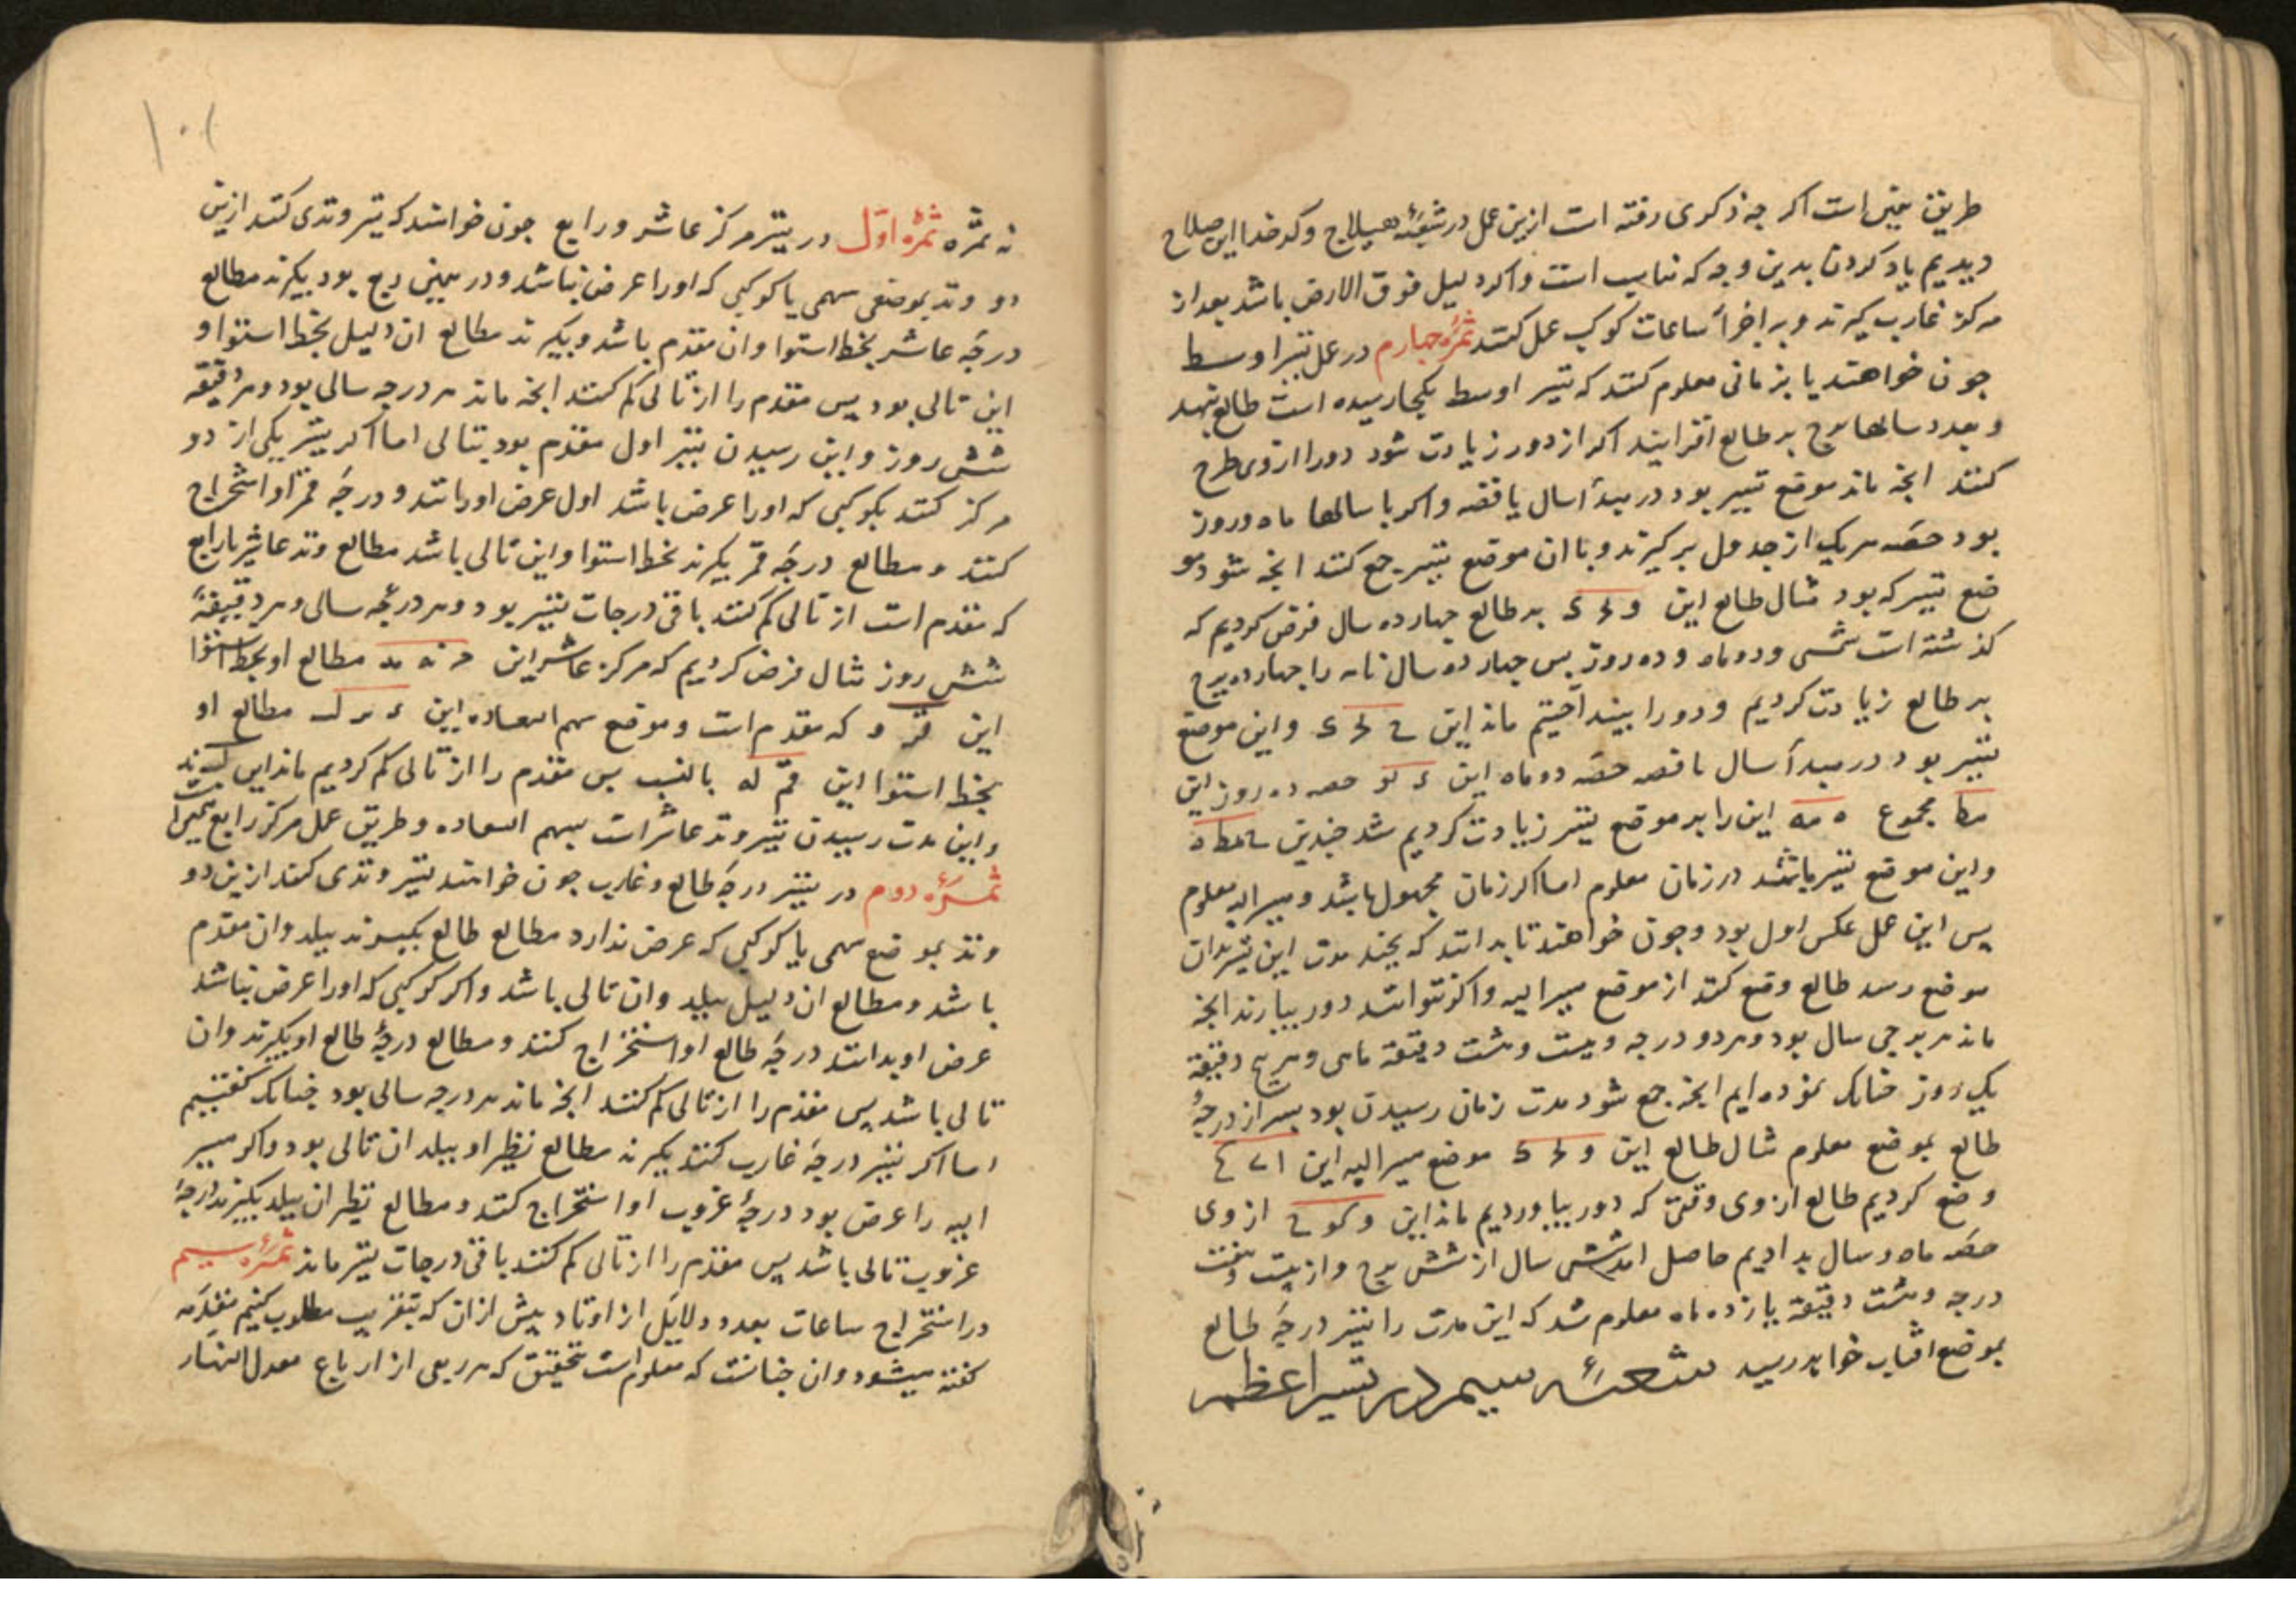 طریق یقین است اکر چه ذکری رفته است ازین عمل در شعبهٔ هیلاج و کدخدا این صلاح
دیدیم یاد کردن بدین وجه که مناسب است و اکر دلیل فوق الارض باشد بعد از
مرکز غارب کیرند و به اجزأ ساعات کوکب عمل کنند ثمرهٔ جهارم در عمل تسیر اوسط
جون خواهند یا بزمانی معلوم کنند که تسیر اوسط بکجا رسیده است طالع بنهد
و بعدد سالها برج بر طالع افزایند اکر از دور زیادت شود دور را از وی طرح
کنند انجه ماند موقع تسییر بود در مبدأ سال یا قصه و اکر با سالها ماه و روز
بود حصه هریک از جدول بر کیرند و با ان موضع تسیر جمع کنند انجه شود مو
ضع تسیر که بود مثال طالع این و لح ک به طالع جهارده سال فرض کردیم که
کذشته است شمسی و دو ماه و ده روز بس جهارده سال تامه را جهارده برج
بر طالع زیادت کردیم و دور را بینداختیم ماند این ح لح ک و این موضع
تسییر بود در مبدأ سال ناقصه حصه دو ماه این ء نو حصه ده روز این
مط مجموع ه مه این را بر موضع تسیر زیادت کردیم شد جندین ح مط ه
و این موضع تسیر باشد در زمان معلوم اما اکر زمان مجهول باشد و مسیر الیه معلوم
پس این عمل عکس اول بود و جون خواهند تا بدانند که بجند مدت این تسیر بدان
موضع رسد طالع وضع کنند از موضع مسیر الیه و اکر نتوانند دور بیارند انجه
ماند هر برجی سال بود و هر دو درجه و بیست و هشت دقیقه ماهی و هر پنج دقیقه
یک روز جنانک نموده ایم انجه جمع شود مدت زمان رسیدن بود بسر از درجهٔ
طالع بموضع معلوم مثال طالع این و لح ک موضع مسیر الیه این ا
وضع کردیم طالع از وی وقتی که دور بیاوردیم ماند این و کو ح از وی
حصه ماه و سال بدادیم حاصل امد شش سال از شش برج و از بیست و هفت
درجه و هشت دقیقه یازده ماه معلوم شد که این مدت را تسیر درجهٔ طالع
بموضع افتاب خواهد رسید شعبهٔ سیم در تسیر اعظم
نه ثمره ثمرهٔ اول در تسیر مرکز عاشر و رابع جون خواهند که تسیر وتدی کنند ازین
دو وتد بموضع سهمی یا کوکبی که او را عرض نباشد و در همین ربع بود بکیرند مطالع
درجهٔ عاشر بخط استوا و ان مقدم باشد و بکیرند مطالع ان دلیل بخط استوا و
این تالی بود پس مقدم را از تالی کم کنند انجه ماند هر درجه سالی بود و هر دقیقه
شش روز و این رسیدن تسیر اول مقدم بود بتالی اما اکر تسیر یکی از دو
مرکز کنند بکوکبی که او را عرض باشد اول عرض او بدانند و درجهٔ ممر او استخراج
کنند و مطالع درجهٔ ممر بکیرند بخط استوا و این تالی باشد مطالع وتد عاشر یا رابع
که مقدم است از تالی کم کنند باقی درجات تسیر بود و هر درجه سالی و هر دقیقهٔ
شش روز مثال فرض کردیم که مرکز عاشر این ح نه مد مطالع او بخط استوا
این قر و که مقدم است و موضع سهم السعاده این ء مر ک مطالع او
بخط استوا این قم له بالنسب بس مقدم را از تالی کم کردیم ماند این
و این مدت رسیدن تسیر وتد عاشر است بسهم السعاده و طریق عمل مرکز رابع همین است
ثمرهٔ دوم در تسیر درجهٔ طالع و غارب جون خواهند تسیر وتدی کنند ازین دو
وتد بموضع سهمی یا کوکبی که عرض ندارد مطالع طالع بکیرند ببلد و ان مقدم
باشد و مطالع ان دلیل ببلد و ان تالی باشد و اکر کوکبی که او را عرض نباشد
عرض او بدانند درجهٔ طالع او استخراج کنند و مطالع درجهٔ طالع او بکیرند و ان
تالی باشد پس مقدم را از تالی کم کنند انجه ماند هر درجه سالی بود جنانک کفتیم
اما اکر تسیر درجهٔ غارب کنند بکیرند مطالع نظیر او ببلد ان تالی بود و اکر مسیر
الیه را عرض بود درجهٔ غروب او استخراج کنند و مطالع نظیر ان ببلد بکیرند درجهٔ
غروب تالی باشد پس مقدم را از تالی کم کنند باقی درجات تسیر ماند ثمرهٔ سیم
در استخراج ساعات بعد و دلایل از اوتاد پیش از ان که بتقریب مطلوب کنیم مقدمه
کفته میشود و ان جنانست که معلوم است بتحقیق که هر ربعی از ارباع معدل النهار